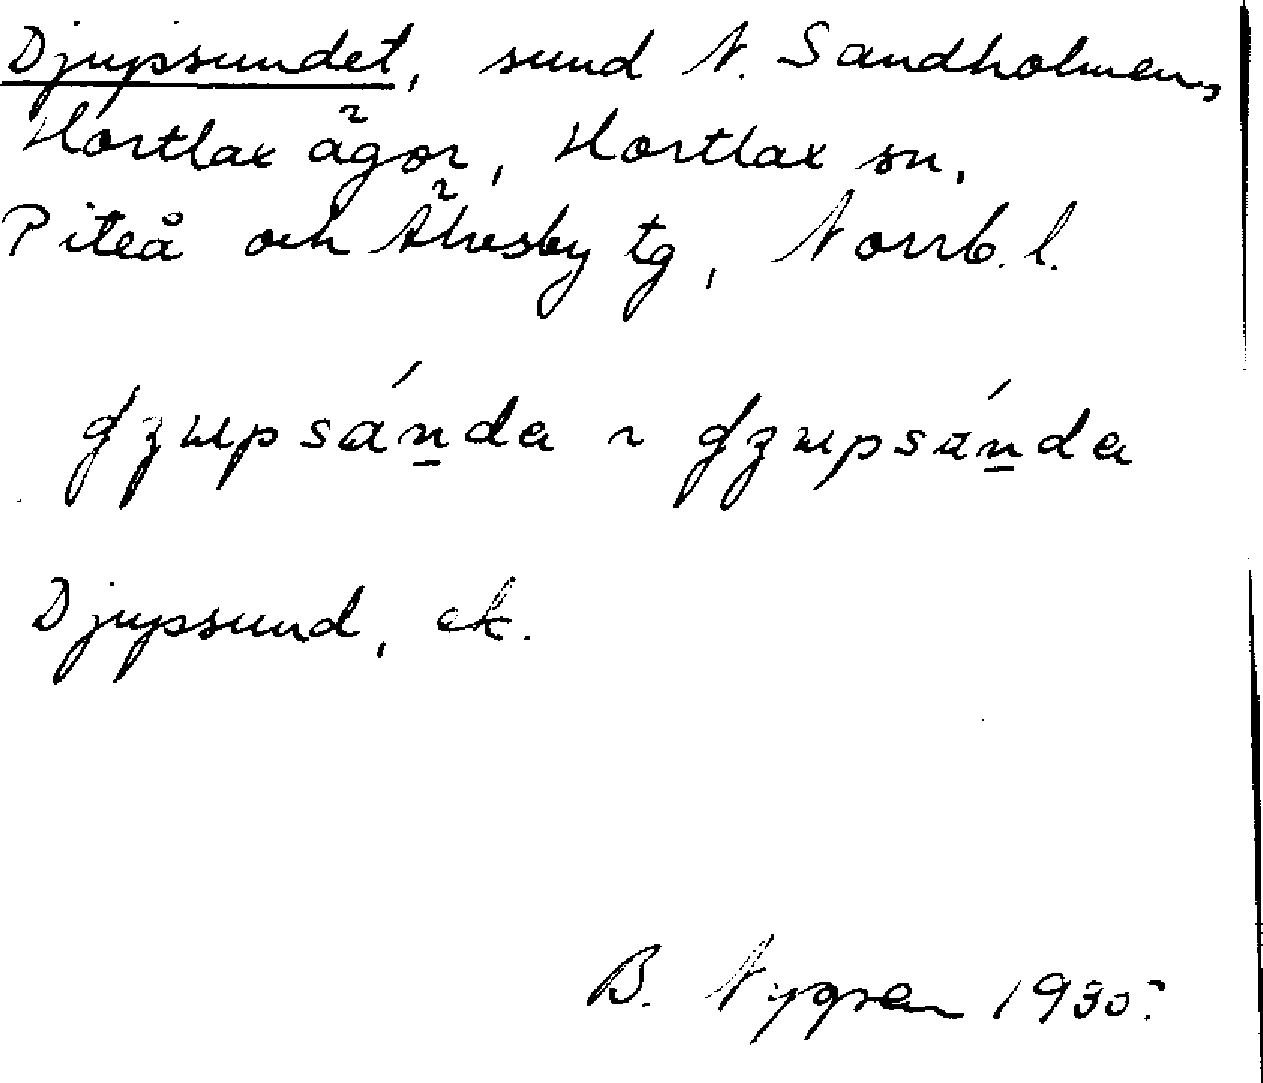 Djupsundet, sund N. Sandholmen,
Hortlax ägor, Hortlax sn,
Piteå och Älvsby tg, Norrb. l.
Djupsund, ek.
B. Nygren 1930?